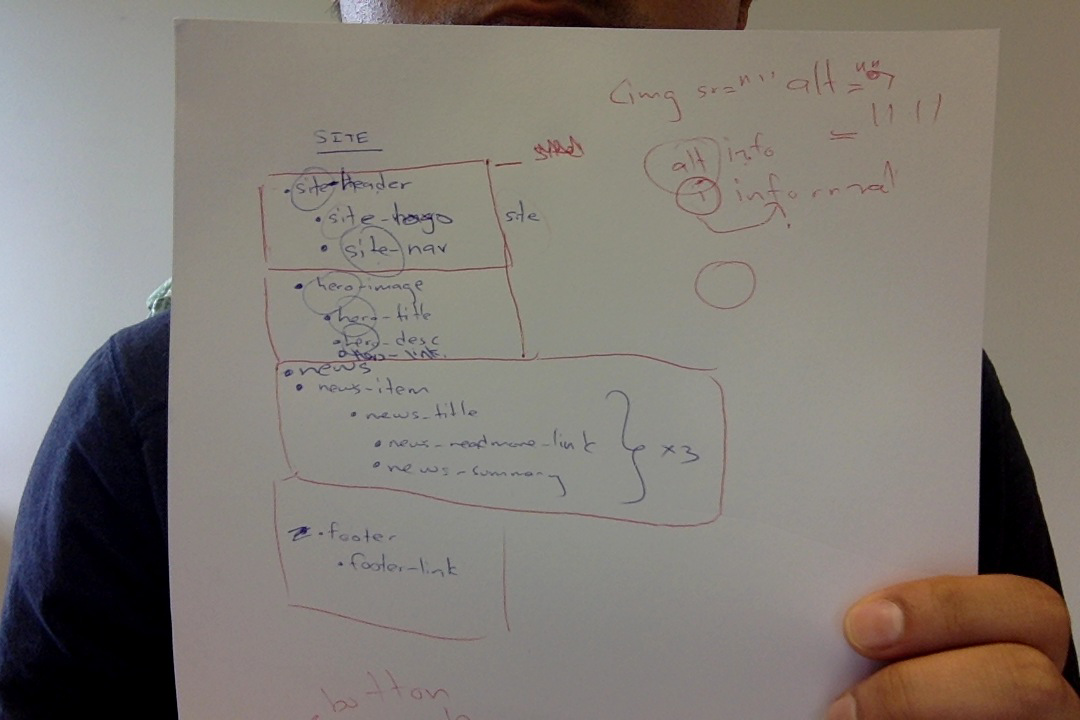 <img src="" alt=""
= " "
SITE
alt info
i informal
.site-header
.site-logo
site
.site-nav
.hero-image
.hero-title
.hero-desc
.hero-link
.news
.news-item
.news-title
.news-readmore-link
x3
.news-summary
.footer
.footer-link
button